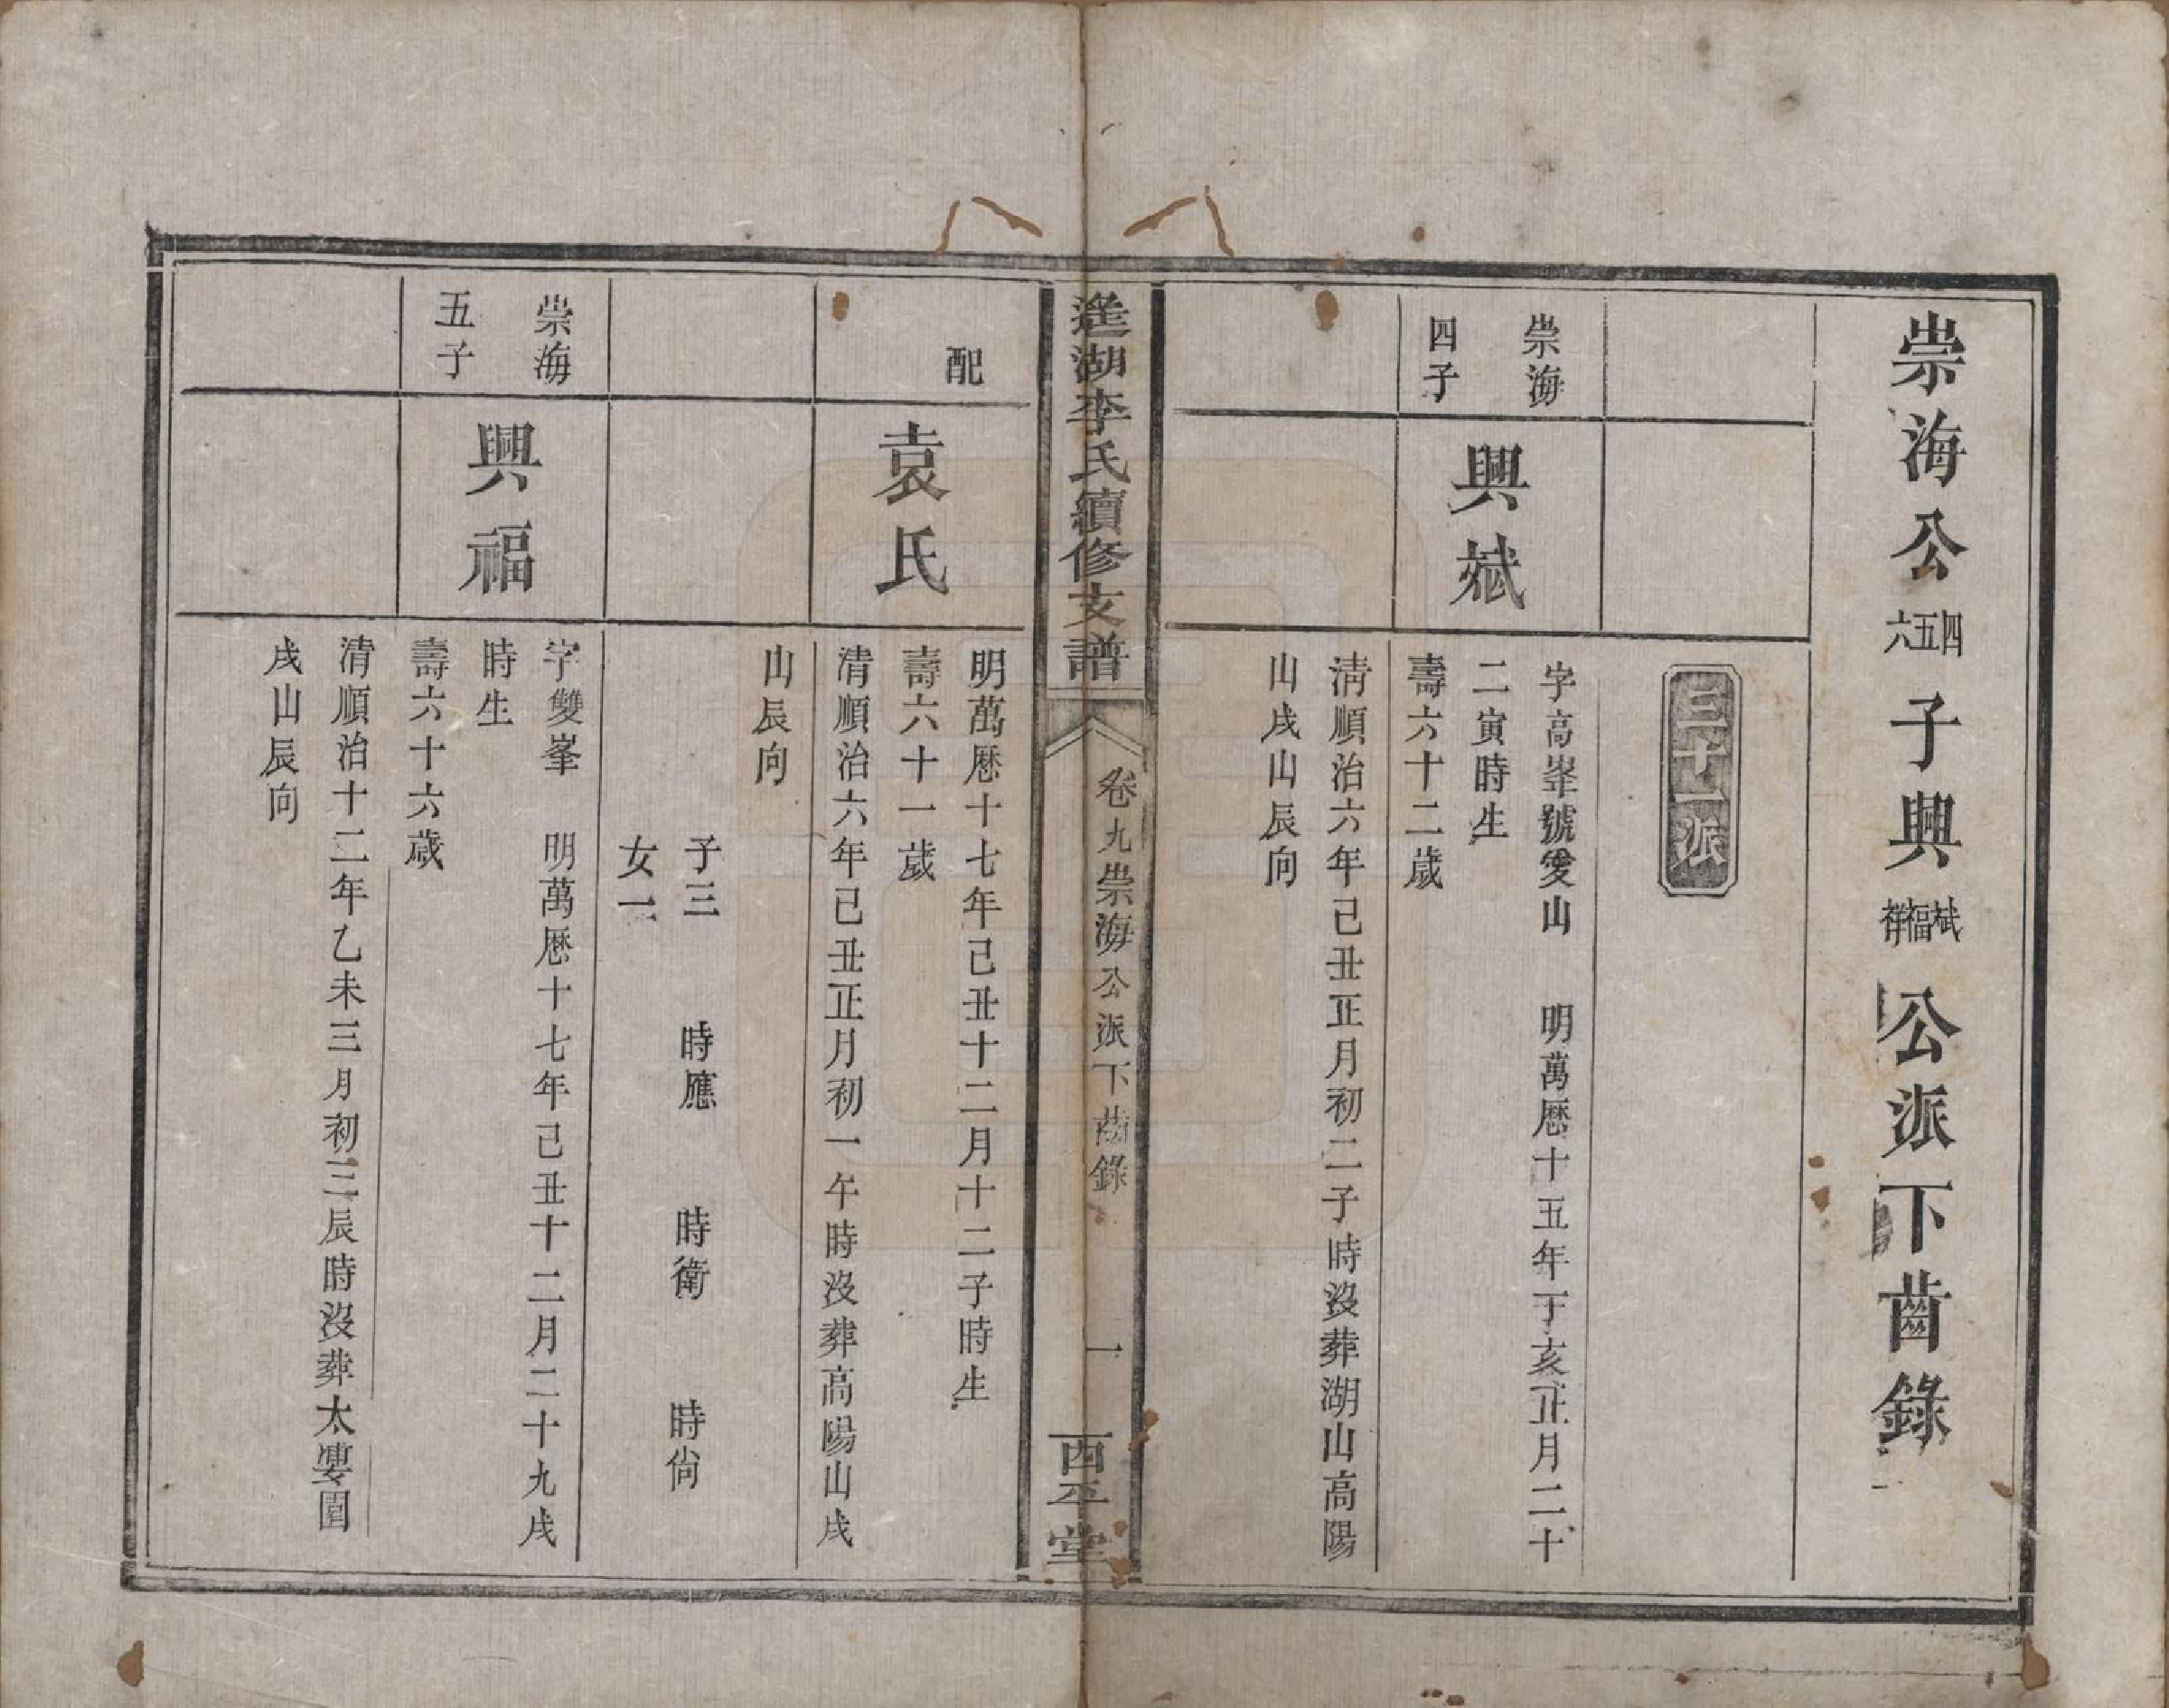 崇海公四五六子興斌福祥公派下齒錄
三十一派
崇海
四子
興斌
字高峯號愛山 明萬曆十五年丁亥正月二十
二寅時生
壽六十二歲
淸順治六年己丑正月初二子時沒葬湖山高陽
山戌山辰向
湖李氏續修支譜
卷九崇海公派下齒錄
一
西平堂
配
袁氏
明萬曆十七年己丑十二月十二子時生
壽六十一歲
清順治六年己丑正月初一午時沒葬高陽山戌
山辰向
子三 時應 時衛 時尙
女一
崇海
五子
興福
字雙峯 明萬曆十七年己丑十二月二十九戌
時生
壽六十六歲
清順治十二年乙未三月初三辰時沒葬太婆園
戌山辰向